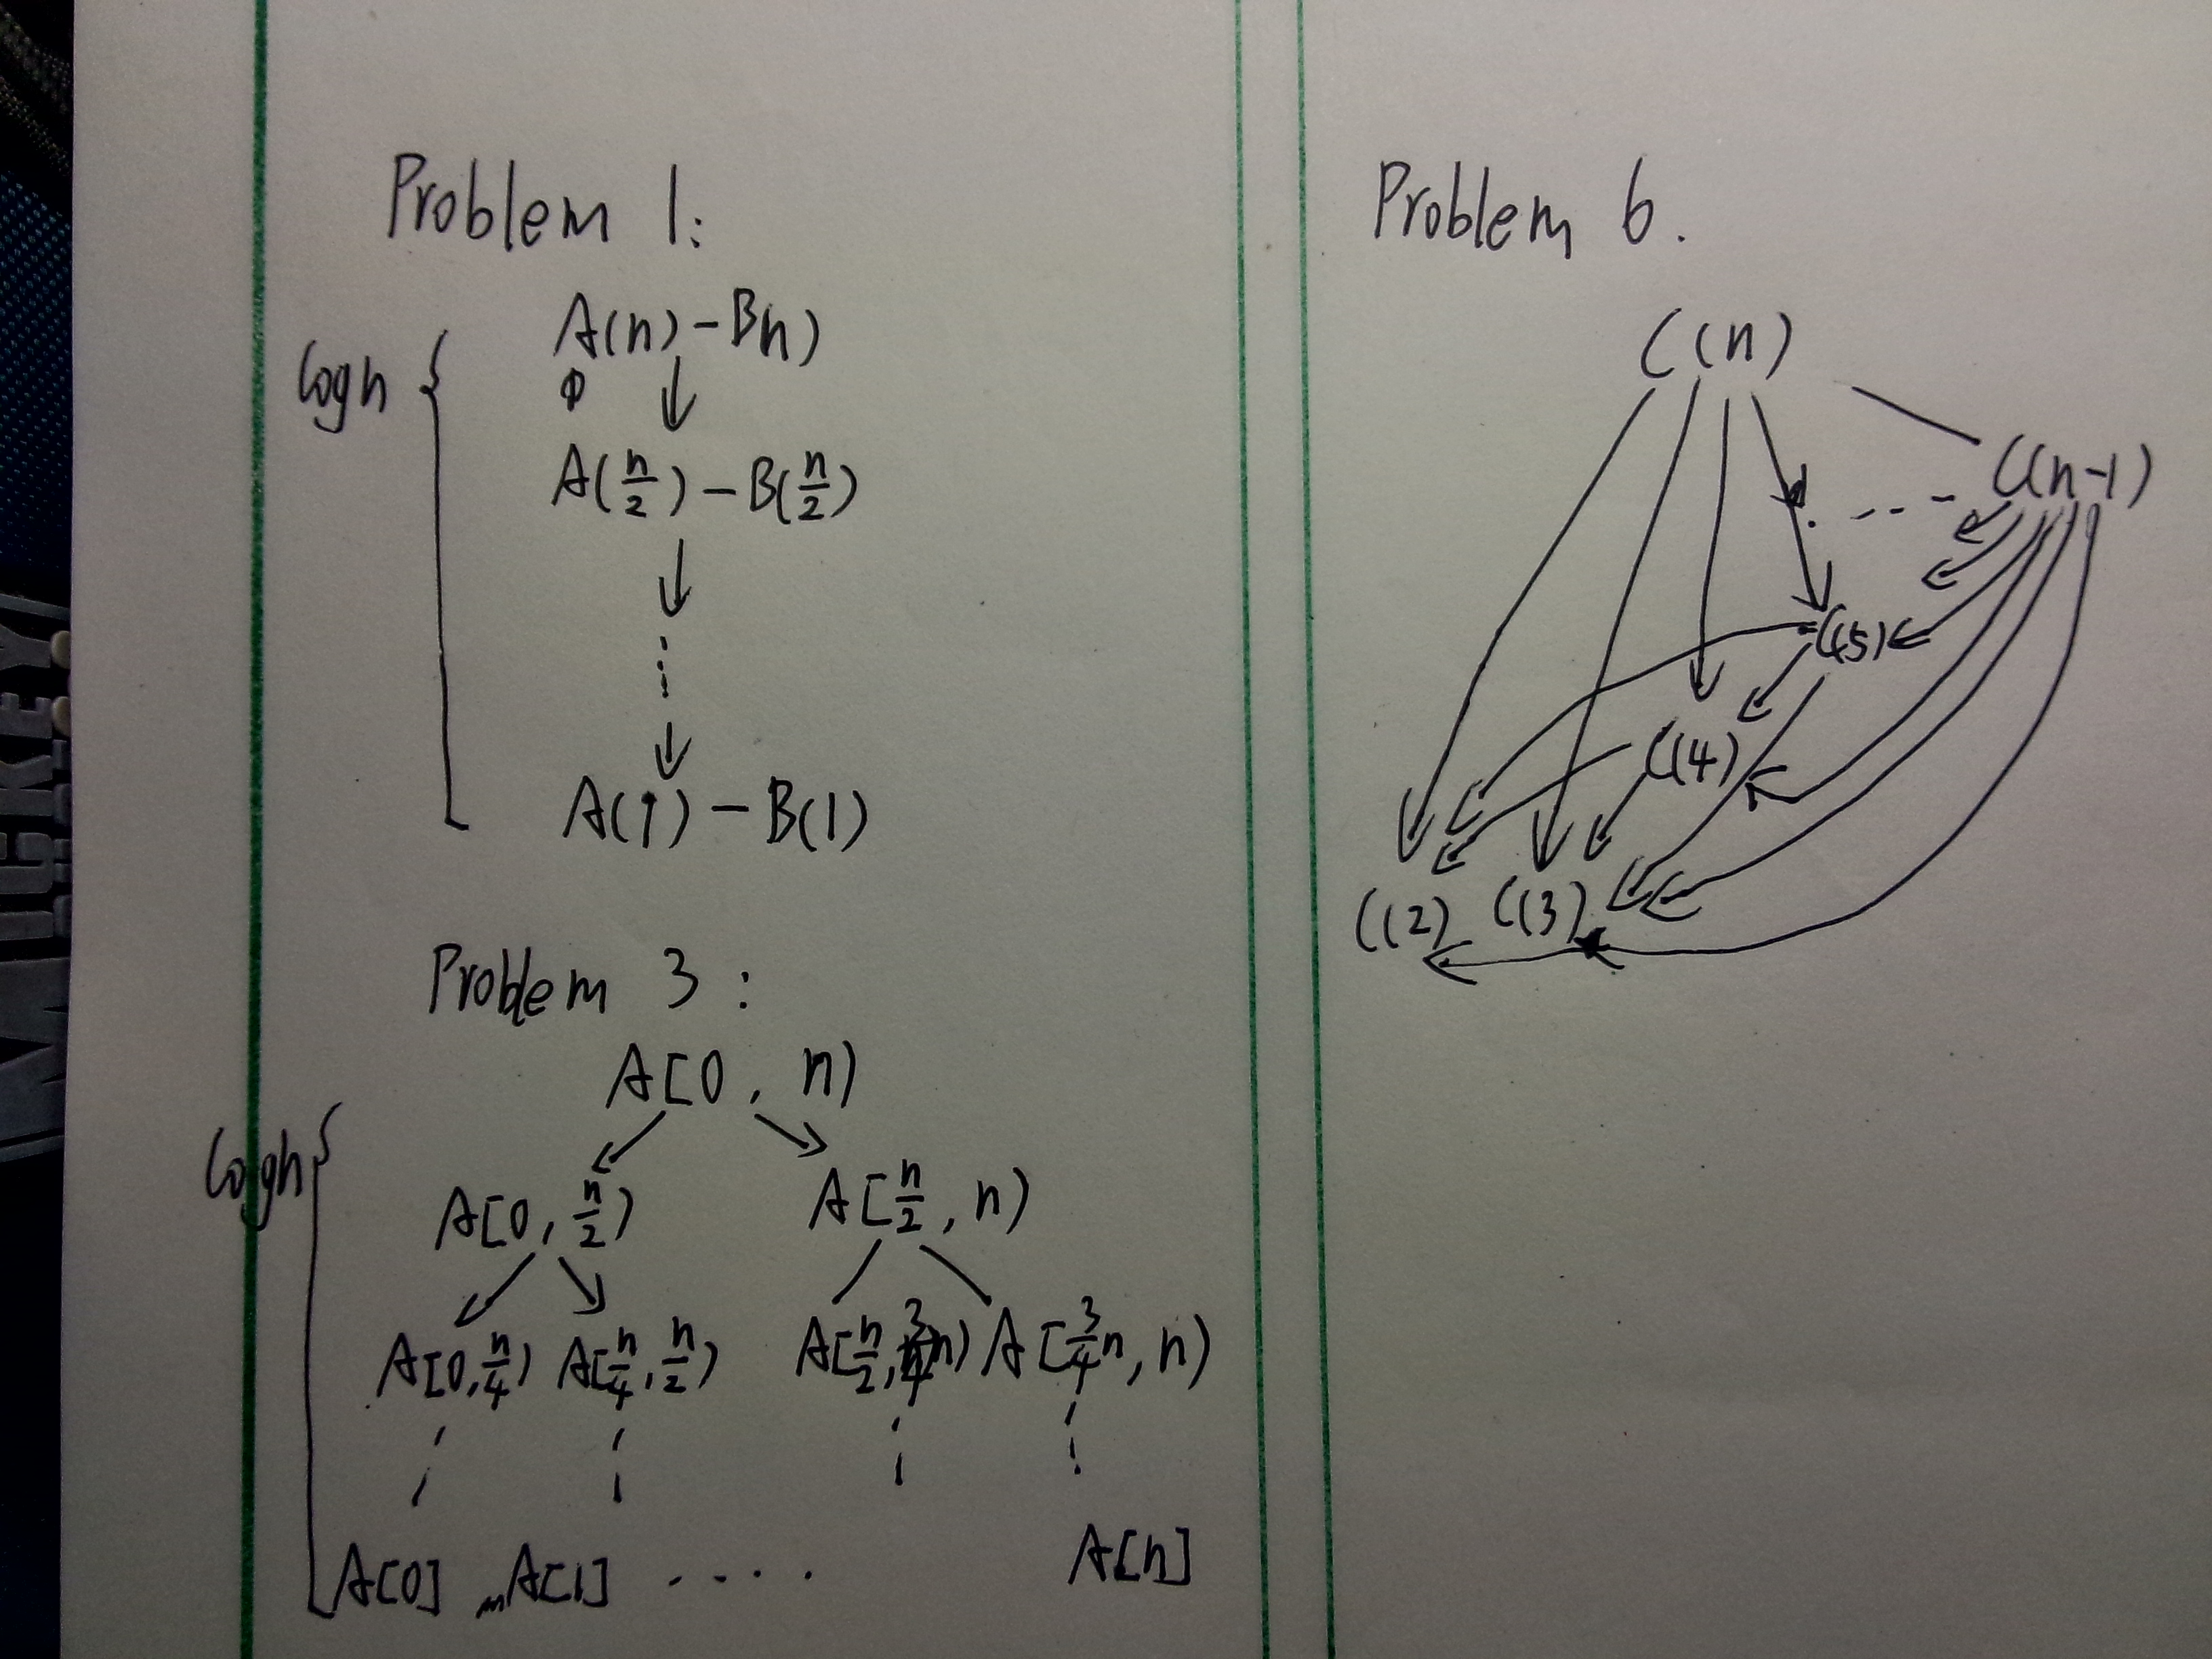 MICKEY
Problem 1:
A(n) - B(n)
logn {
A(n/2) - B(n/2)
⋮
A(1) - B(1)
Problem 3:
A[0, n)
logn {
A[0, n/2) A[n/2, n)
A[0, n/4) A[n/4, n/2) A[n/2, 3/4n) A[3/4n, n)
A[0] A[1] .... A[n]
Problem 6.
C(n)
C(n-1)
C(5)
C(4)
C(2) C(3)